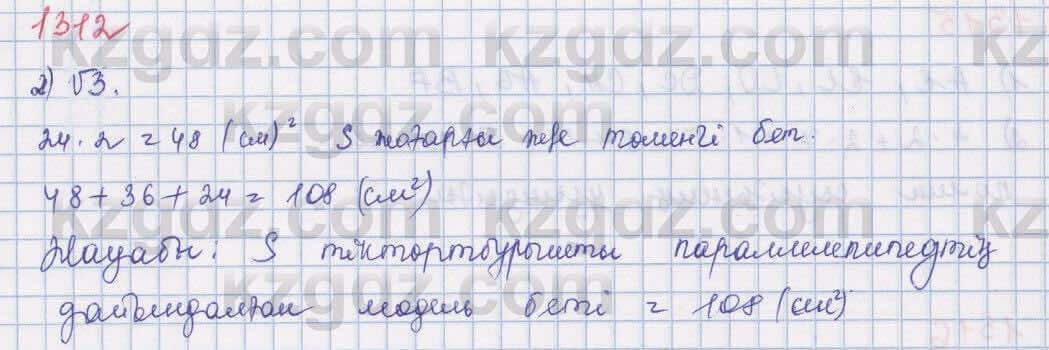 1312
2) √3.
24·2=48 (см)² S жоғарғы және төменгі бет.
48+36+24=108 (см²)
Жауабы: S тіктөртбұрышты параллелепипедтің
дайындалған модель беті = 108 (см²)
kzgdz.com